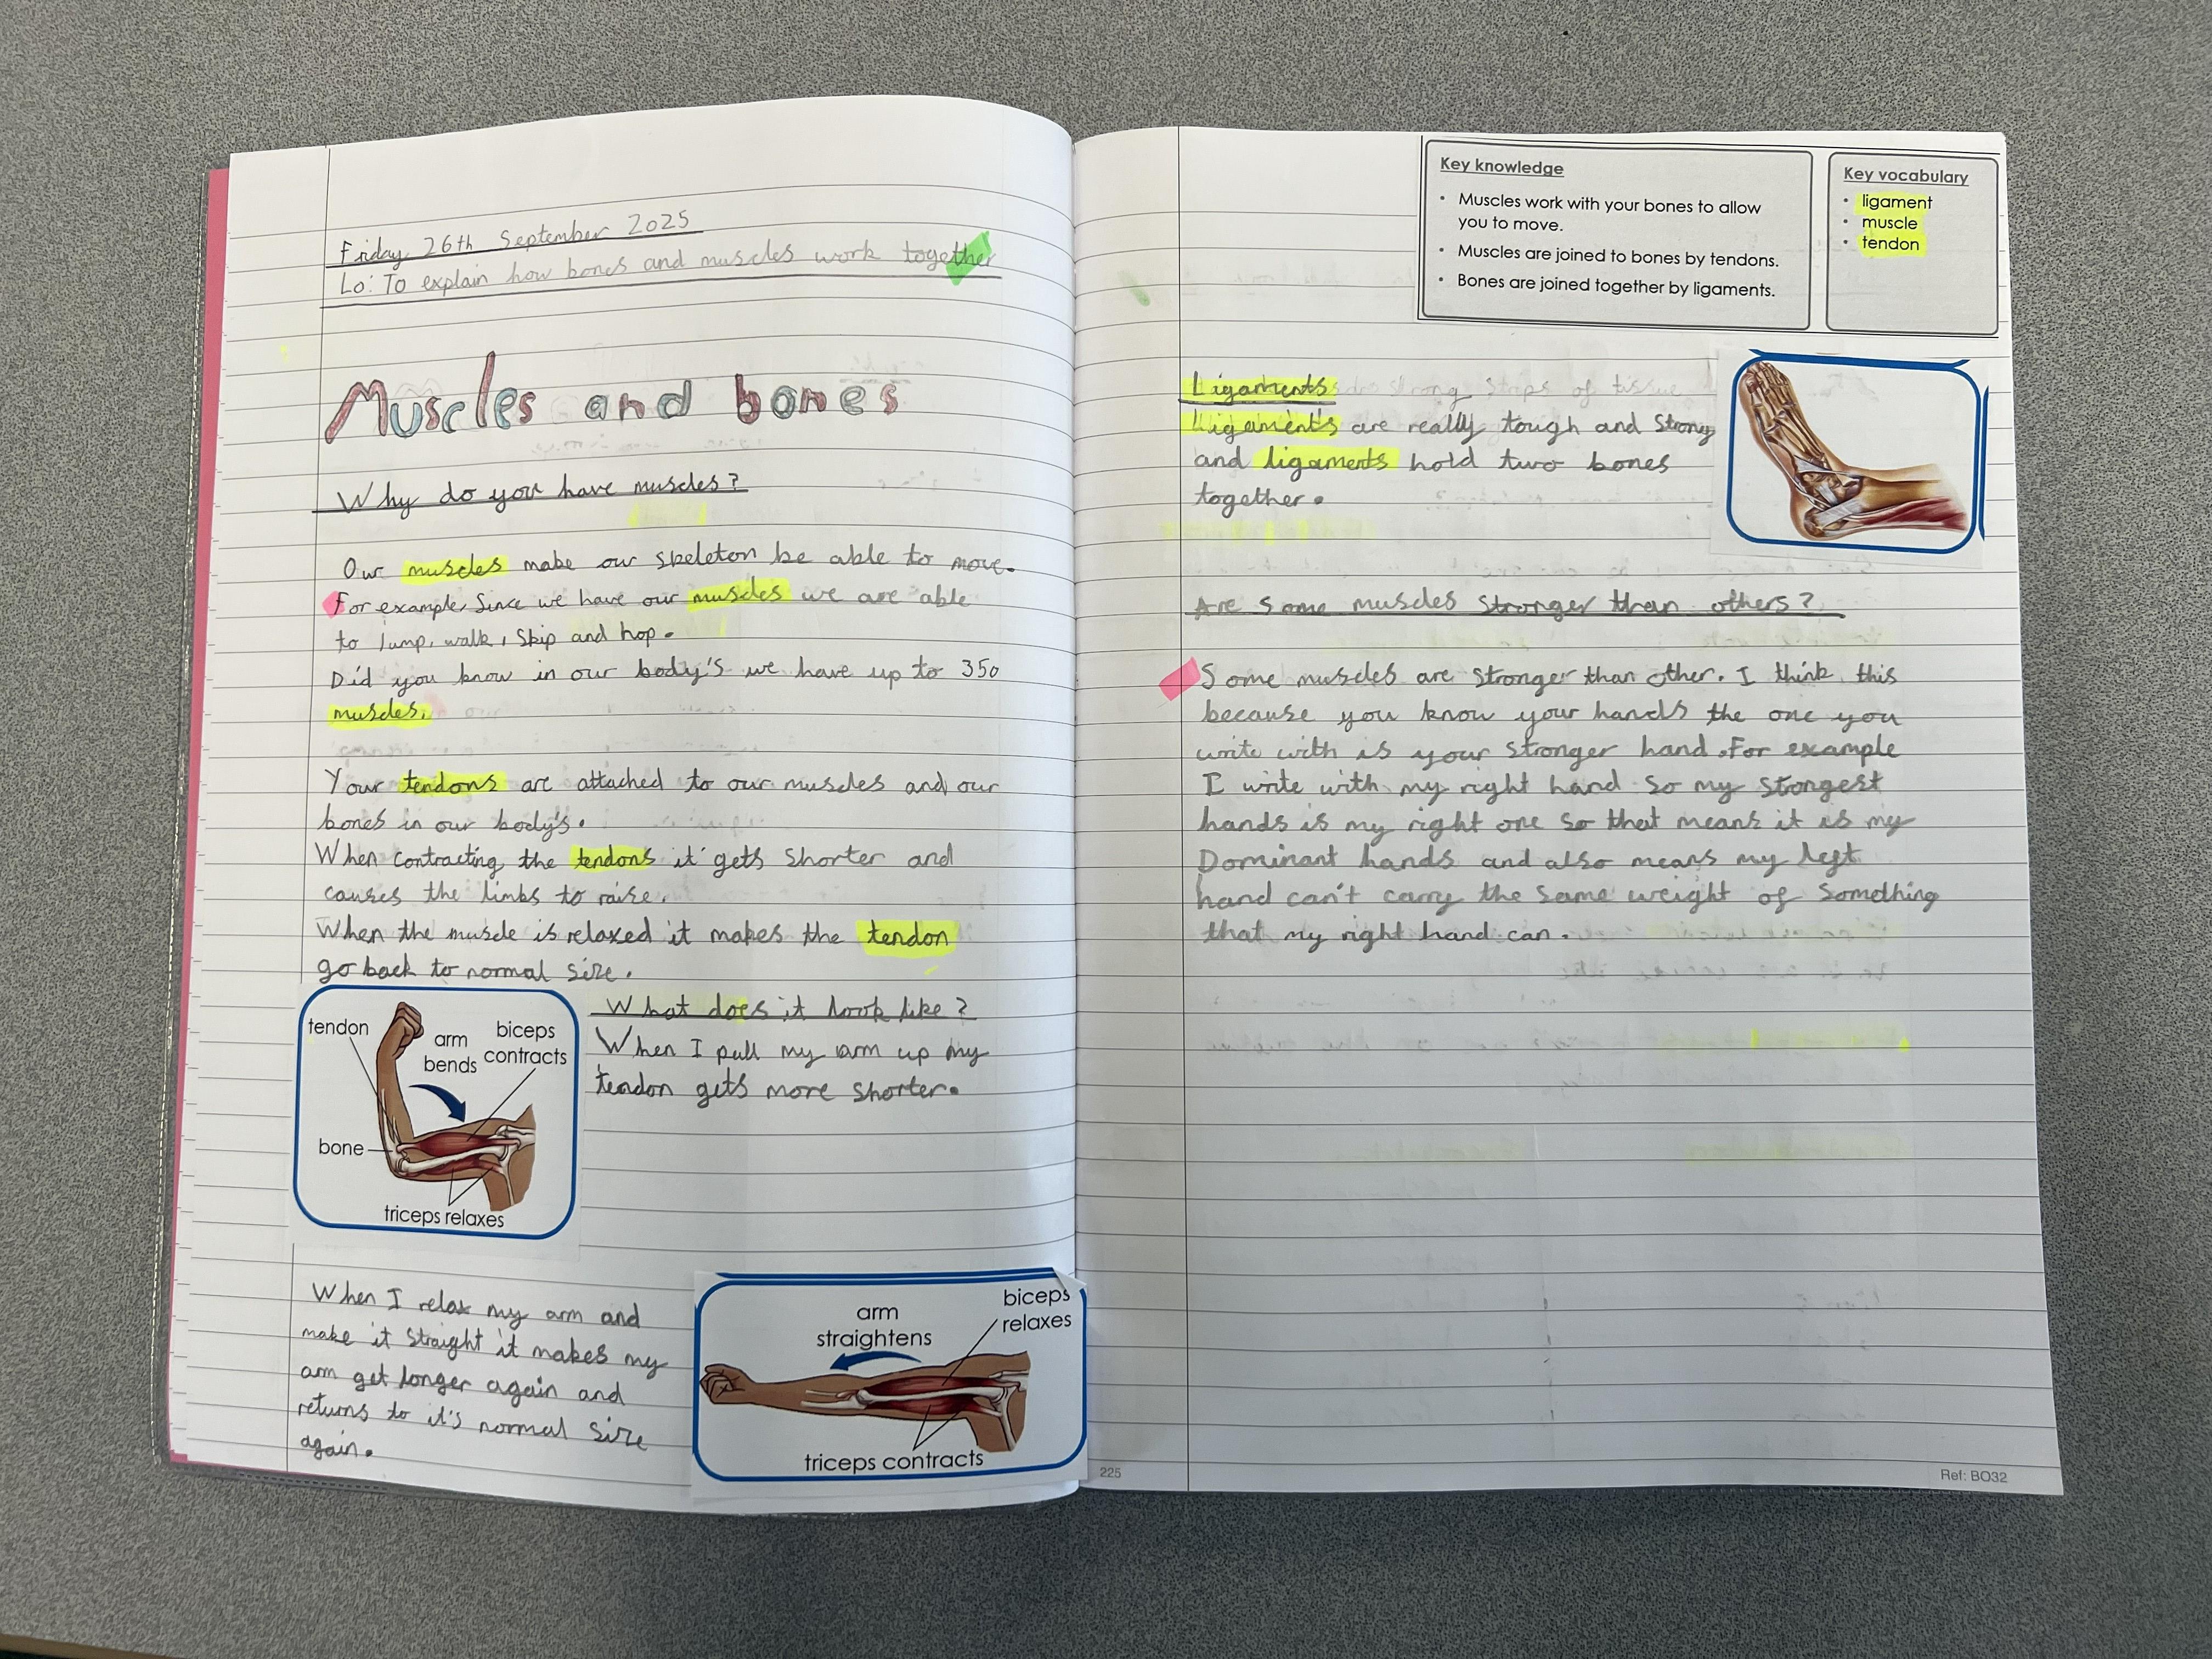 Friday 26th September 2025
Lo: To explain how bones and muscles work together
Muscles and bones
Why do you have muscles?
Our muscles make our skeleton be able to move.
For example, Since we have our muscles we are able
to Jump, walk, Skip and hop.
Did you know in our body's we have up to 350
muscles.
Your tendons are attached to our muscles and our
bones in our body's.
When contracting the tendons it gets shorter and
causes the limbs to raise.
When the muscle is relaxed it makes the tendon
go back to normal size.
tendon
arm
bends
biceps
contracts
bone
triceps relaxes
What does it look like?
When I pull my arm up my
tendon gets more shorter.
When I relax my arm and
make it straight it makes my
arm get longer again and
returns to it's normal size
again.
arm
straightens
biceps
relaxes
triceps contracts
Key knowledge
• Muscles work with your bones to allow
you to move.
• Muscles are joined to bones by tendons.
• Bones are joined together by ligaments.
Key vocabulary
• ligament
• muscle
• tendon
Ligaments
strong strips of tissue
Ligaments are really tough and Strong
and ligaments hold two bones
together.
Are Some muscles Stronger than others?
Some muscles are Stronger than other. I think this
because you know your hands the one you
write with is your Stronger hand. For example
I write with my right hand So my Strongest
hands is my right one So that means it is my
Dominant hands and also means my left
hand can't carry the Same weight of Something
that my right hand can.
225
Ref: BO32